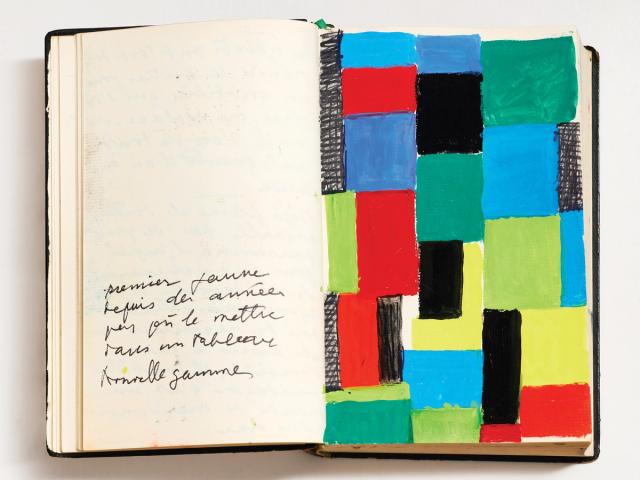 premier jaune
depuis des années
pas pu le mettre
dans un tableau
Nouvelle gamme